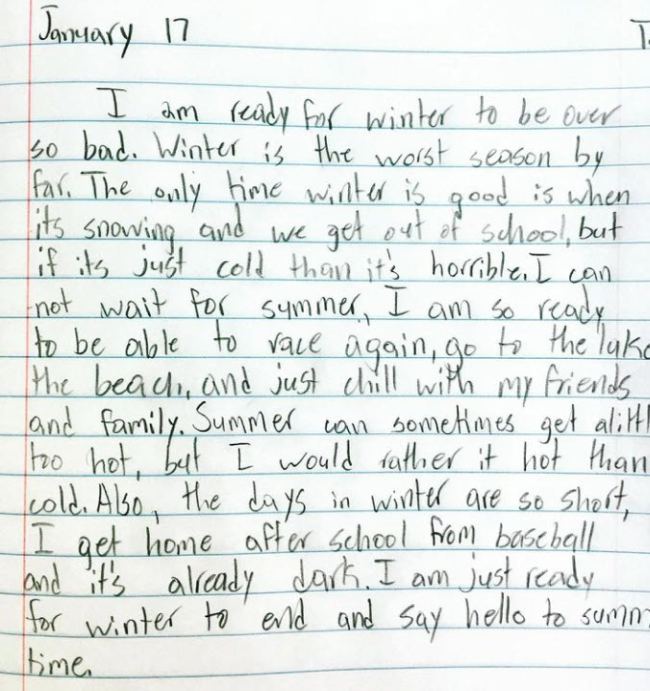 January 17 T
I am ready for winter to be over
so bad. Winter is the worst season by
far. The only time winter is good is when
its snowing and we get out of school, but
if its just cold than it's horrible. I can
not wait for summer, I am so ready
to be able to race again, go to the lake
the beach, and just chill with my friends
and family. Summer can sometimes get alittl
too hot, but I would rather it hot than
cold. Also, the days in winter are so short,
I get home after school from baseball
and it's already dark. I am just ready
for winter to end and say hello to summ
time.